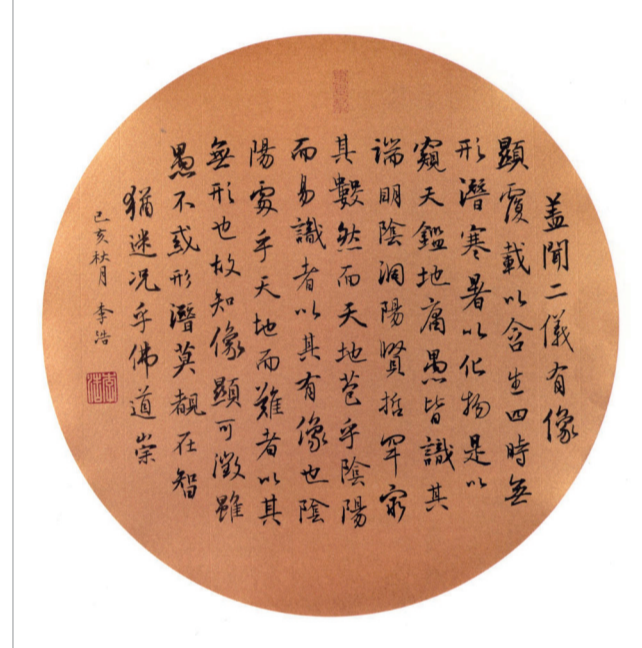 盖聞二儀有像
顯覆載以含生四時無
形潛寒暑以化物是以
窺天鑑地庸愚皆識其
端明陰洞陽賢哲罕窮
其數然而天地苞乎陰陽
而易識者以其有像也陰
陽處乎天地而難者以其
無形也故知像顯可徵雖
愚不惑形潛莫覩在智
猶迷况乎佛道崇
己亥秋月 李浩